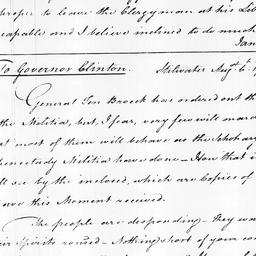 to leave the Clergyman at his Lib
capable and I believe inclined to do much
To Governor Clinton. Stillwater Augt. 6. 1
General Ten Broeck has ordered out th
the Militia, but, I fear, very few will marc
most of them will behave as the Schohary
Schenectady Militia have done - Now that i
see by the inclosed, which are Copies of
this Moment received.
The people are desponding - they wa
Spirits roused - Nothing short of your con